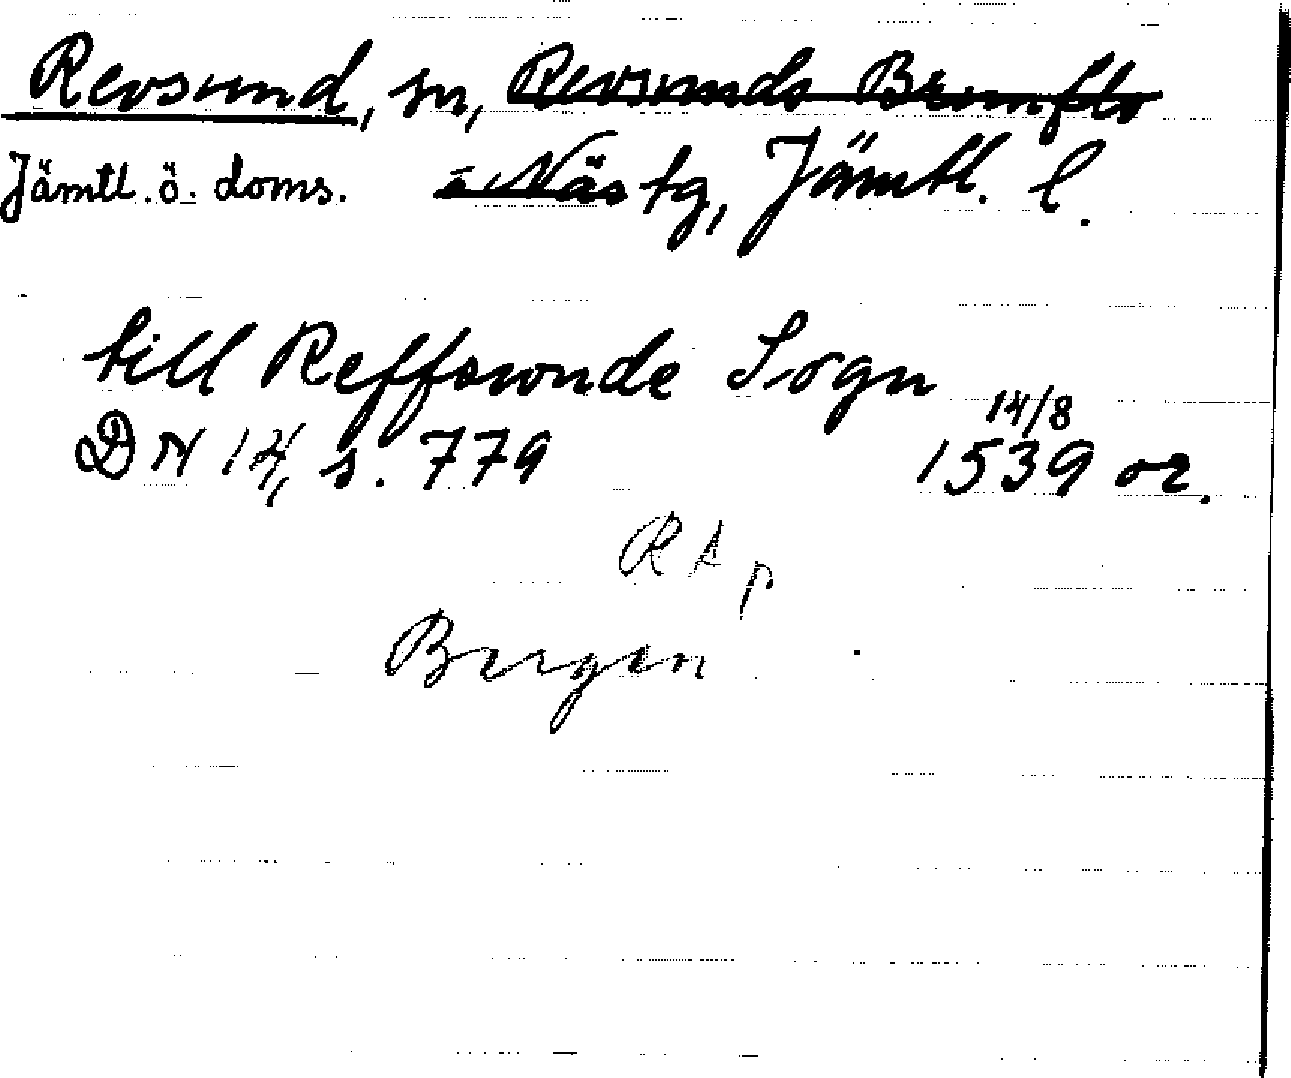 Revsund, sn, Revsunds Brunflo
Jämtl. ö. doms. o Näs tg, Jämtl. l.
till Reffswnde Sogn
14/8
DN 14, s. 779 1539 or.
RA p
Bergen